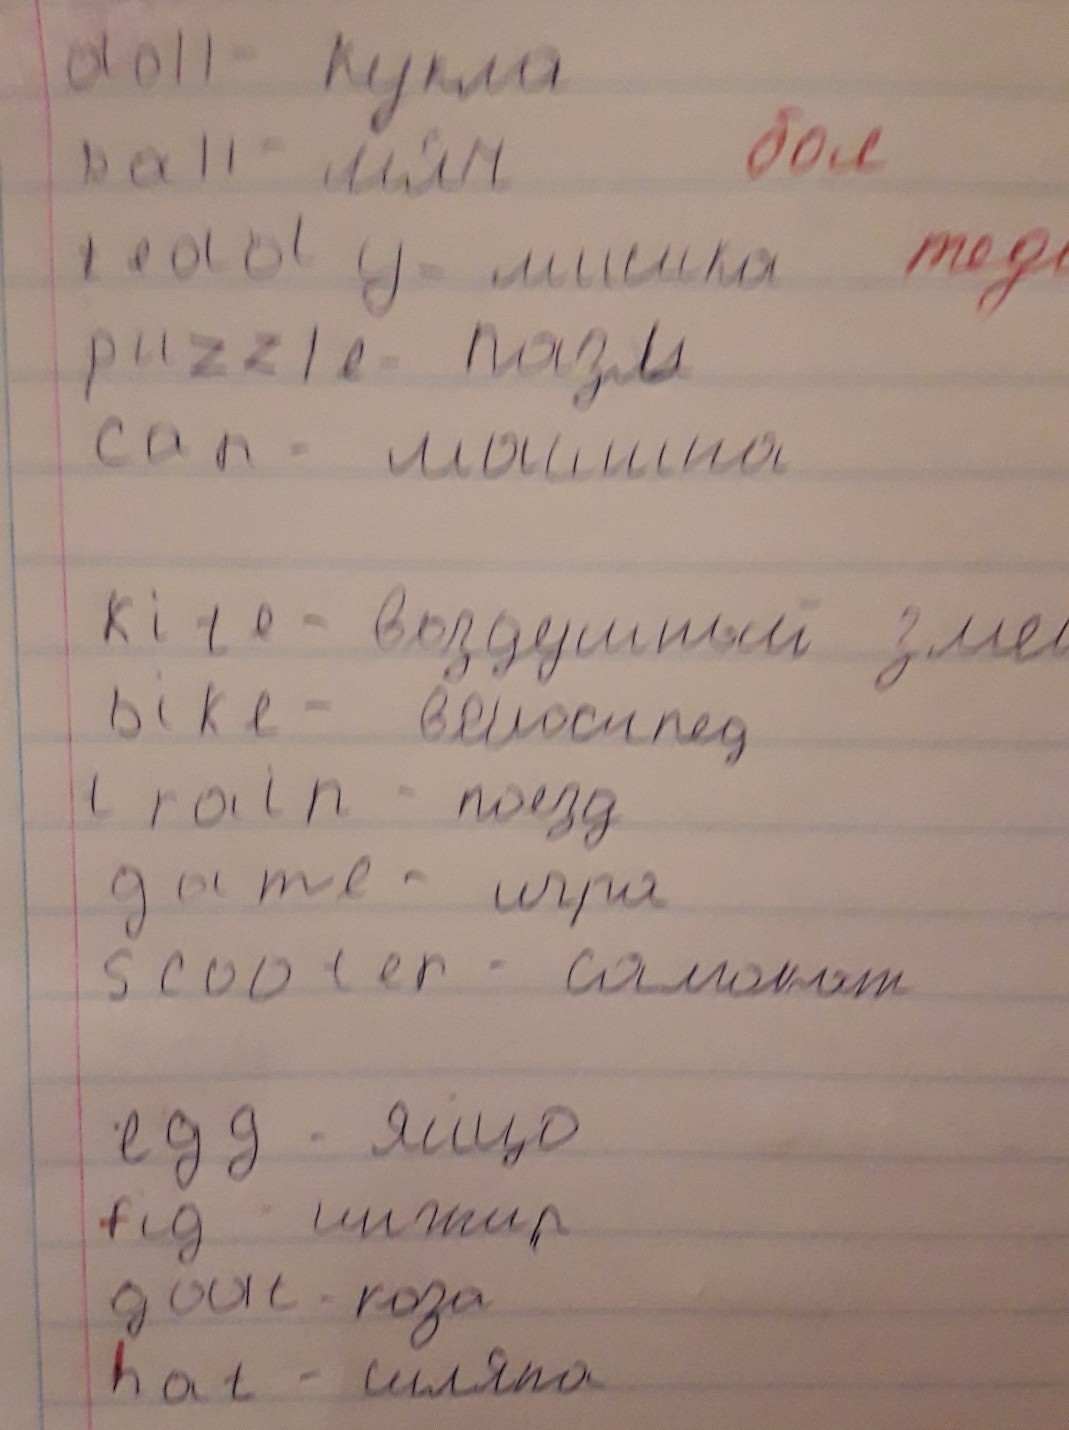 doll - кукла
ball - мяч бол
teddy - мишка
puzzle - пазл
car - машина
kite - воздушный
bike - велосипед
train - поезд
game - игра
scooter - самокат
egg - яйцо
fig - инжир
goat - коза
hat - шляпа